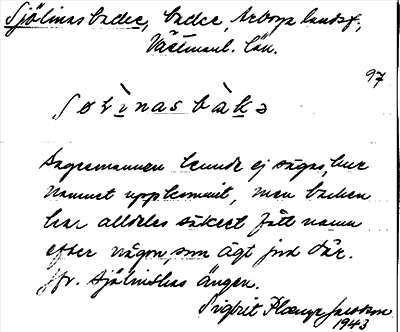 Sjölinasbacke, backe, Arboga landsf.,
Västmanl. län.
97
Sagesmannen kunde ej sägas, hur
namnet uppkommit, men backen
har alldeles säkert fått namn
efter någon, som ägt jord där.
Jfr. Sjölinskas ängen.
Sigbrit Plænge Jacobson
1943